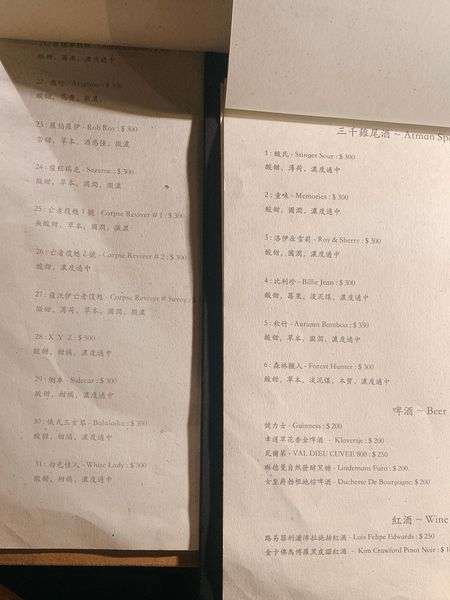 酸甜, 濃度適中
22 : 飛行 - Aviation : $ 300
23 : 羅伯羅伊 - Rob Roy : $ 300
苦甜, 草本, 酒感強, 微濃
24 : 賽茲瑞克 - Sazerac : $ 300
酸甜, 草本, 圓潤, 微濃
25 : 亡者復甦 1 號 - Corpse Reviver # 1 : $ 300
草本, 圓潤, 微濃
26 : 亡者復甦 2 號 - Corpse Reviver # 2 : $ 300
酸甜, 濃度適中
27 : 薩沃伊亡者復甦 - Corpse Reviver # Savoy : $
酸甜, 薄荷, 草本, 圓潤, 微濃
28 : X Y Z : $ 300
酸甜, 柑橘, 濃度適中
29 : 側車 - Sidecar : $ 300
酸甜, 柑橘, 濃度適中
30 : 俄式三女弟 - Balalaika : $ 300
酸甜, 柑橘, 濃度適中
31 : 白色佳人 - White Lady : $ 300
酸甜, 柑橘, 濃度適中
三千雞尾酒 ~ Atman Sp
1 : Stinger Sour : $ 300
酸甜, 薄荷, 濃度適中
2 : 童味 - Memories : $ 300
酸甜, 圓潤, 濃度適中
3 : 洛伊在雪莉 - Roy & Sherry : $ 300
酸甜, 圓潤, 濃度適中
4 : 比利珍 - Billie Jean : $ 300
酸甜, 莓果, 淡泥煤, 濃度適中
5 : 秋竹 - Autumn Bamboo : $ 350
酸甜, 草本, 圓潤, 濃度適中
6 : 森林獵人 - Forest Hunter : $ 300
酸甜, 草本, 淡泥煤, 木質, 濃度適中
啤酒 ~ Beer
健力士 - Guinness : $ 200
幸運草花香金啤酒 - Klavertje : $ 200
瓦爾第 - VAL DIEU CUVEE 800 : $ 250
林德曼自然發酵黑糖 - Lindemans Faro : $ 200.
女皇爵柏根地棕啤酒 - Duchesse De Bourgogne: $ 200
紅酒 ~ Wine
路易菲利浦 - Luis Felipe Edwards : $ 250
金卡佛馬博羅黑皮諾紅酒 - Kim Crawford Pinot Noir : $